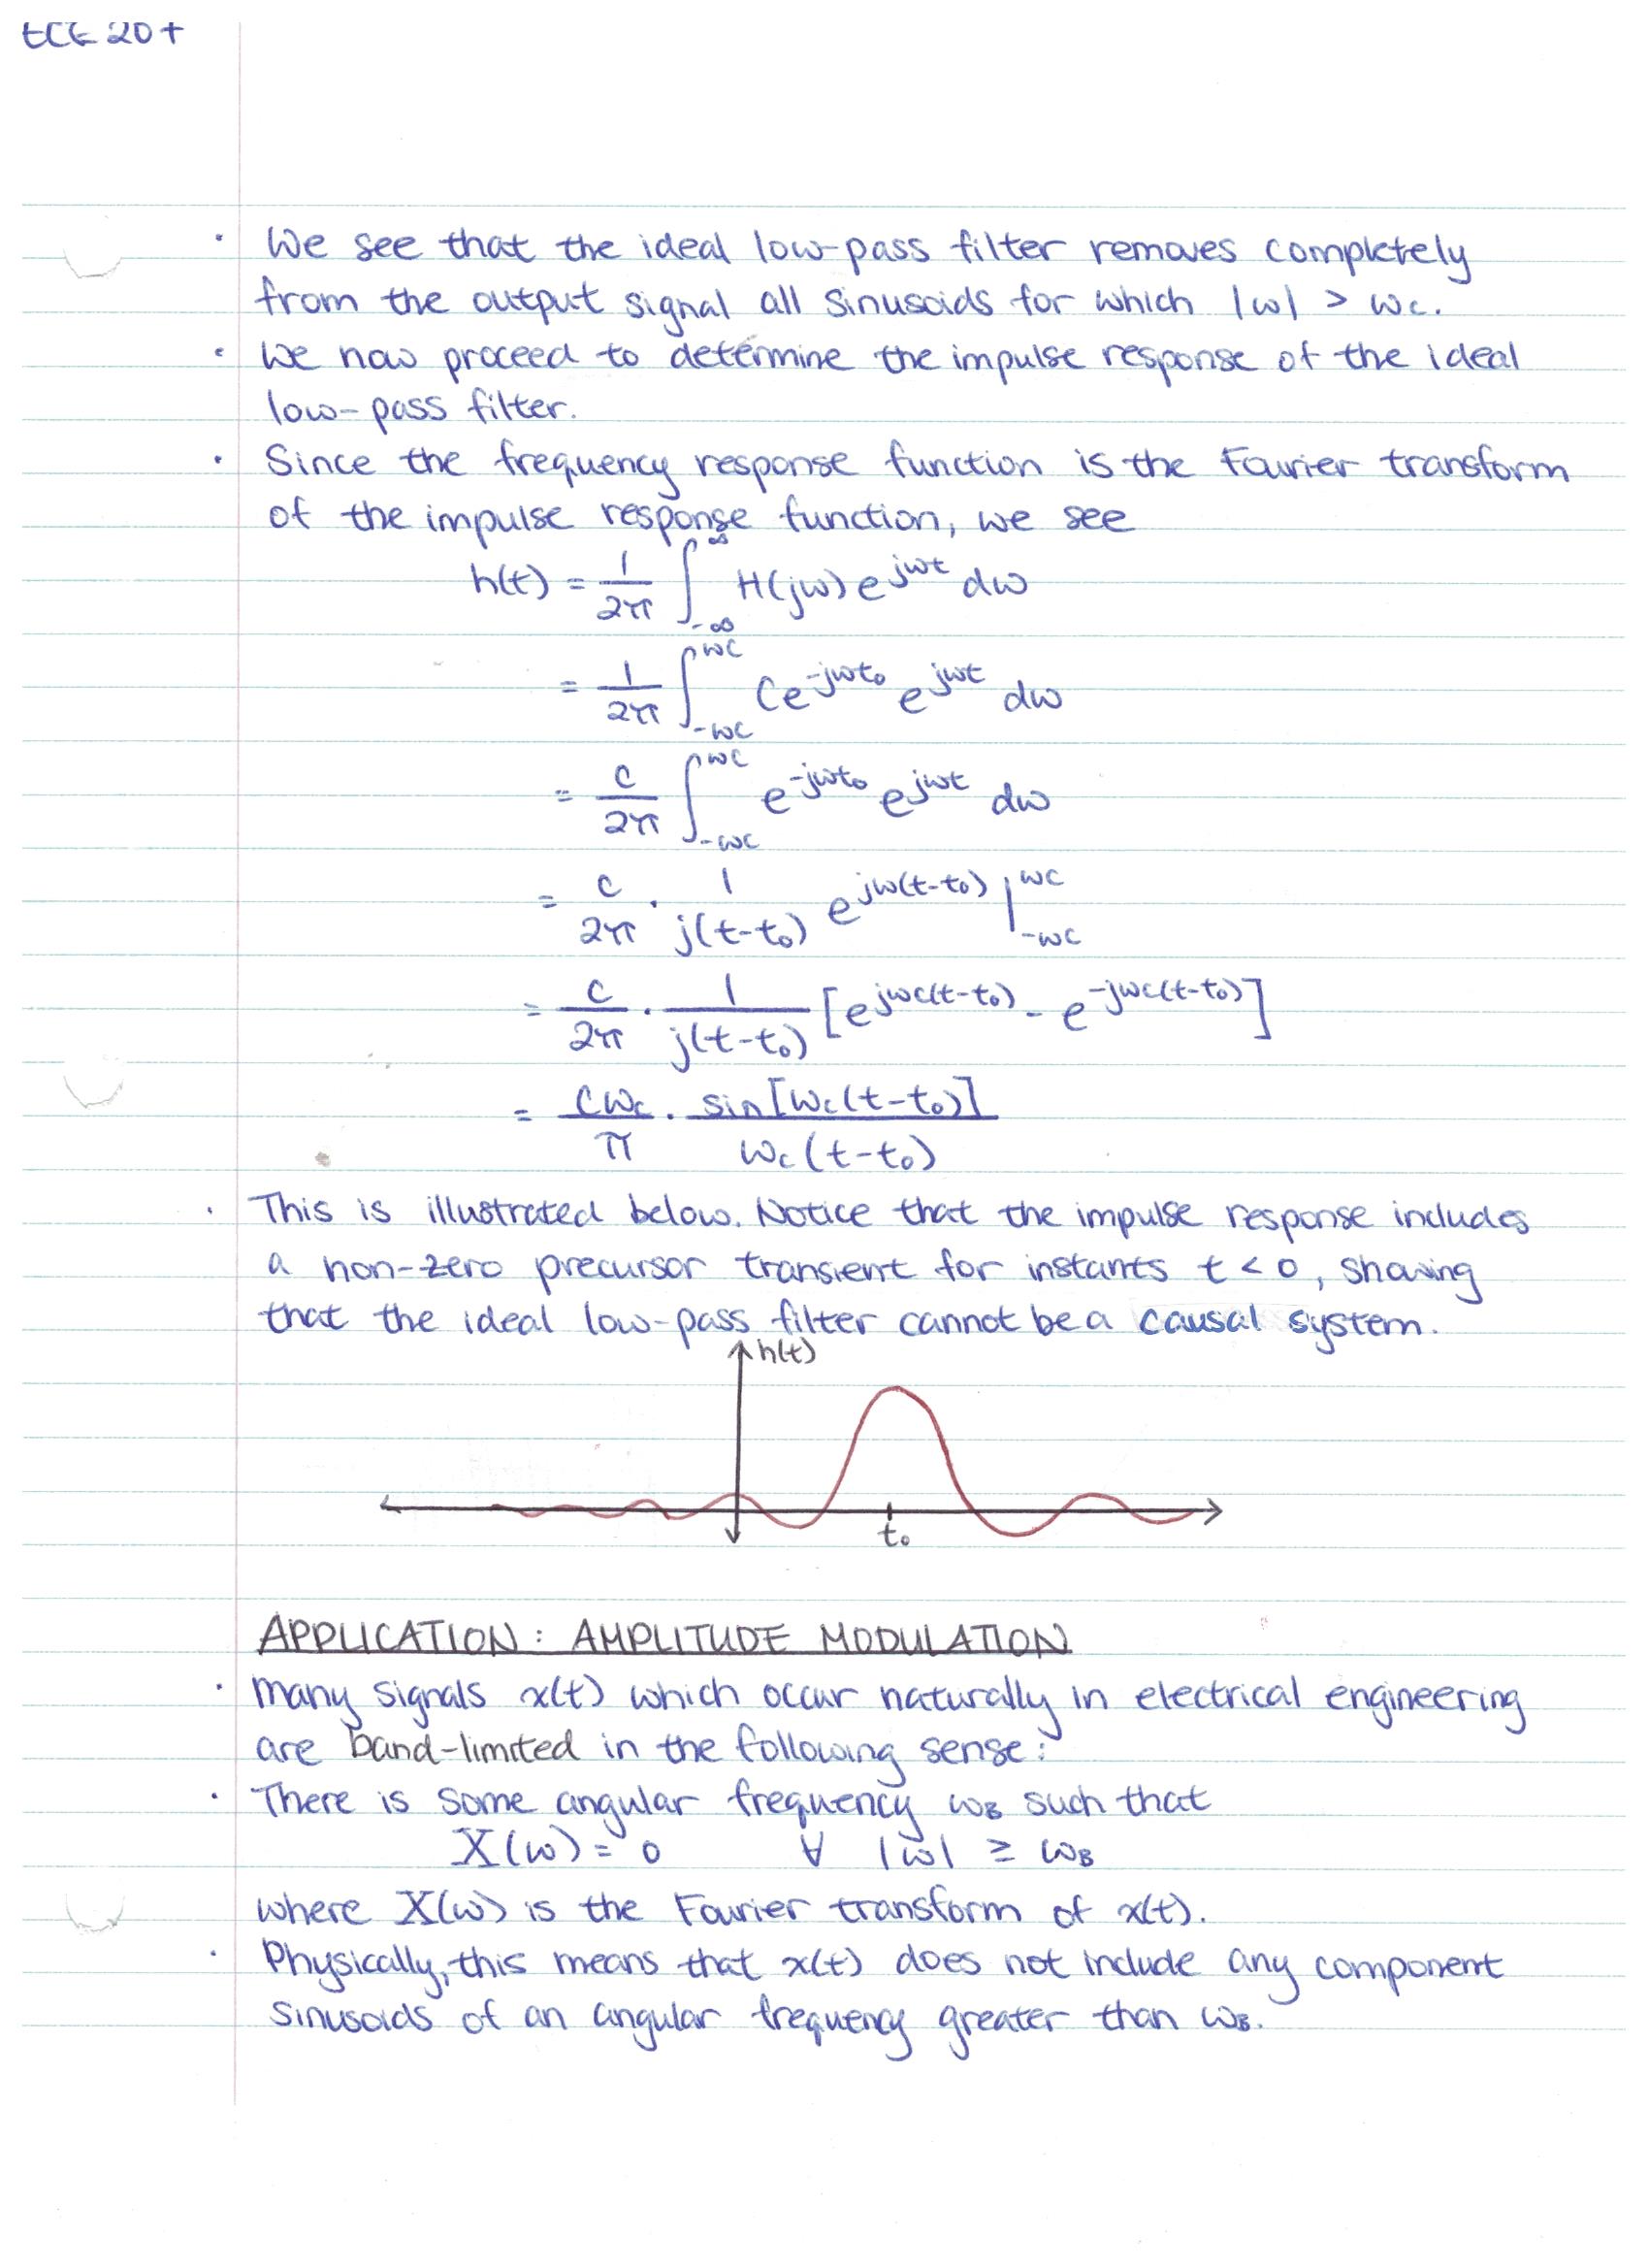 ECE 207
• We see that the ideal low-pass filter removes completely
from the output signal all sinusoids for which |ω| > ωc.
• We now proceed to determine the impulse response of the ideal
low-pass filter.
• Since the frequency response function is the Fourier transform
of the impulse response function, we see
h(t) = 1/2π ∫_{-∞}^{∞} H(jω) e^{jωt} dω
= 1/2π ∫_{-ωc}^{ωc} Ce^{-jωt₀} e^{jωt} dω
= C/2π ∫_{-ωc}^{ωc} e^{-jωt₀} e^{jωt} dω
= C/2π · 1/j(t-t₀) e^{jω(t-t₀)} |_{-ωc}^{ωc}
= C/2π · 1/j(t-t₀) [e^{jωc(t-t₀)} - e^{-jωc(t-t₀)}]
= Cωc/π · sin[ωc(t-t₀)]/ωc(t-t₀)
• This is illustrated below. Notice that the impulse response includes
a non-zero precursor transient for instants t < 0, showing
that the ideal low-pass filter cannot be a causal system.
h(t)
t₀
APPLICATION: AMPLITUDE MODULATION
• Many signals x(t) which occur naturally in electrical engineering
are band-limited in the following sense:
• There is some angular frequency ωB such that
X(ω) = 0 ∀ |ω| ≥ ωB
where X(ω) is the Fourier transform of x(t).
• Physically, this means that x(t) does not include any component
sinusoids of an angular frequency greater than ωB.